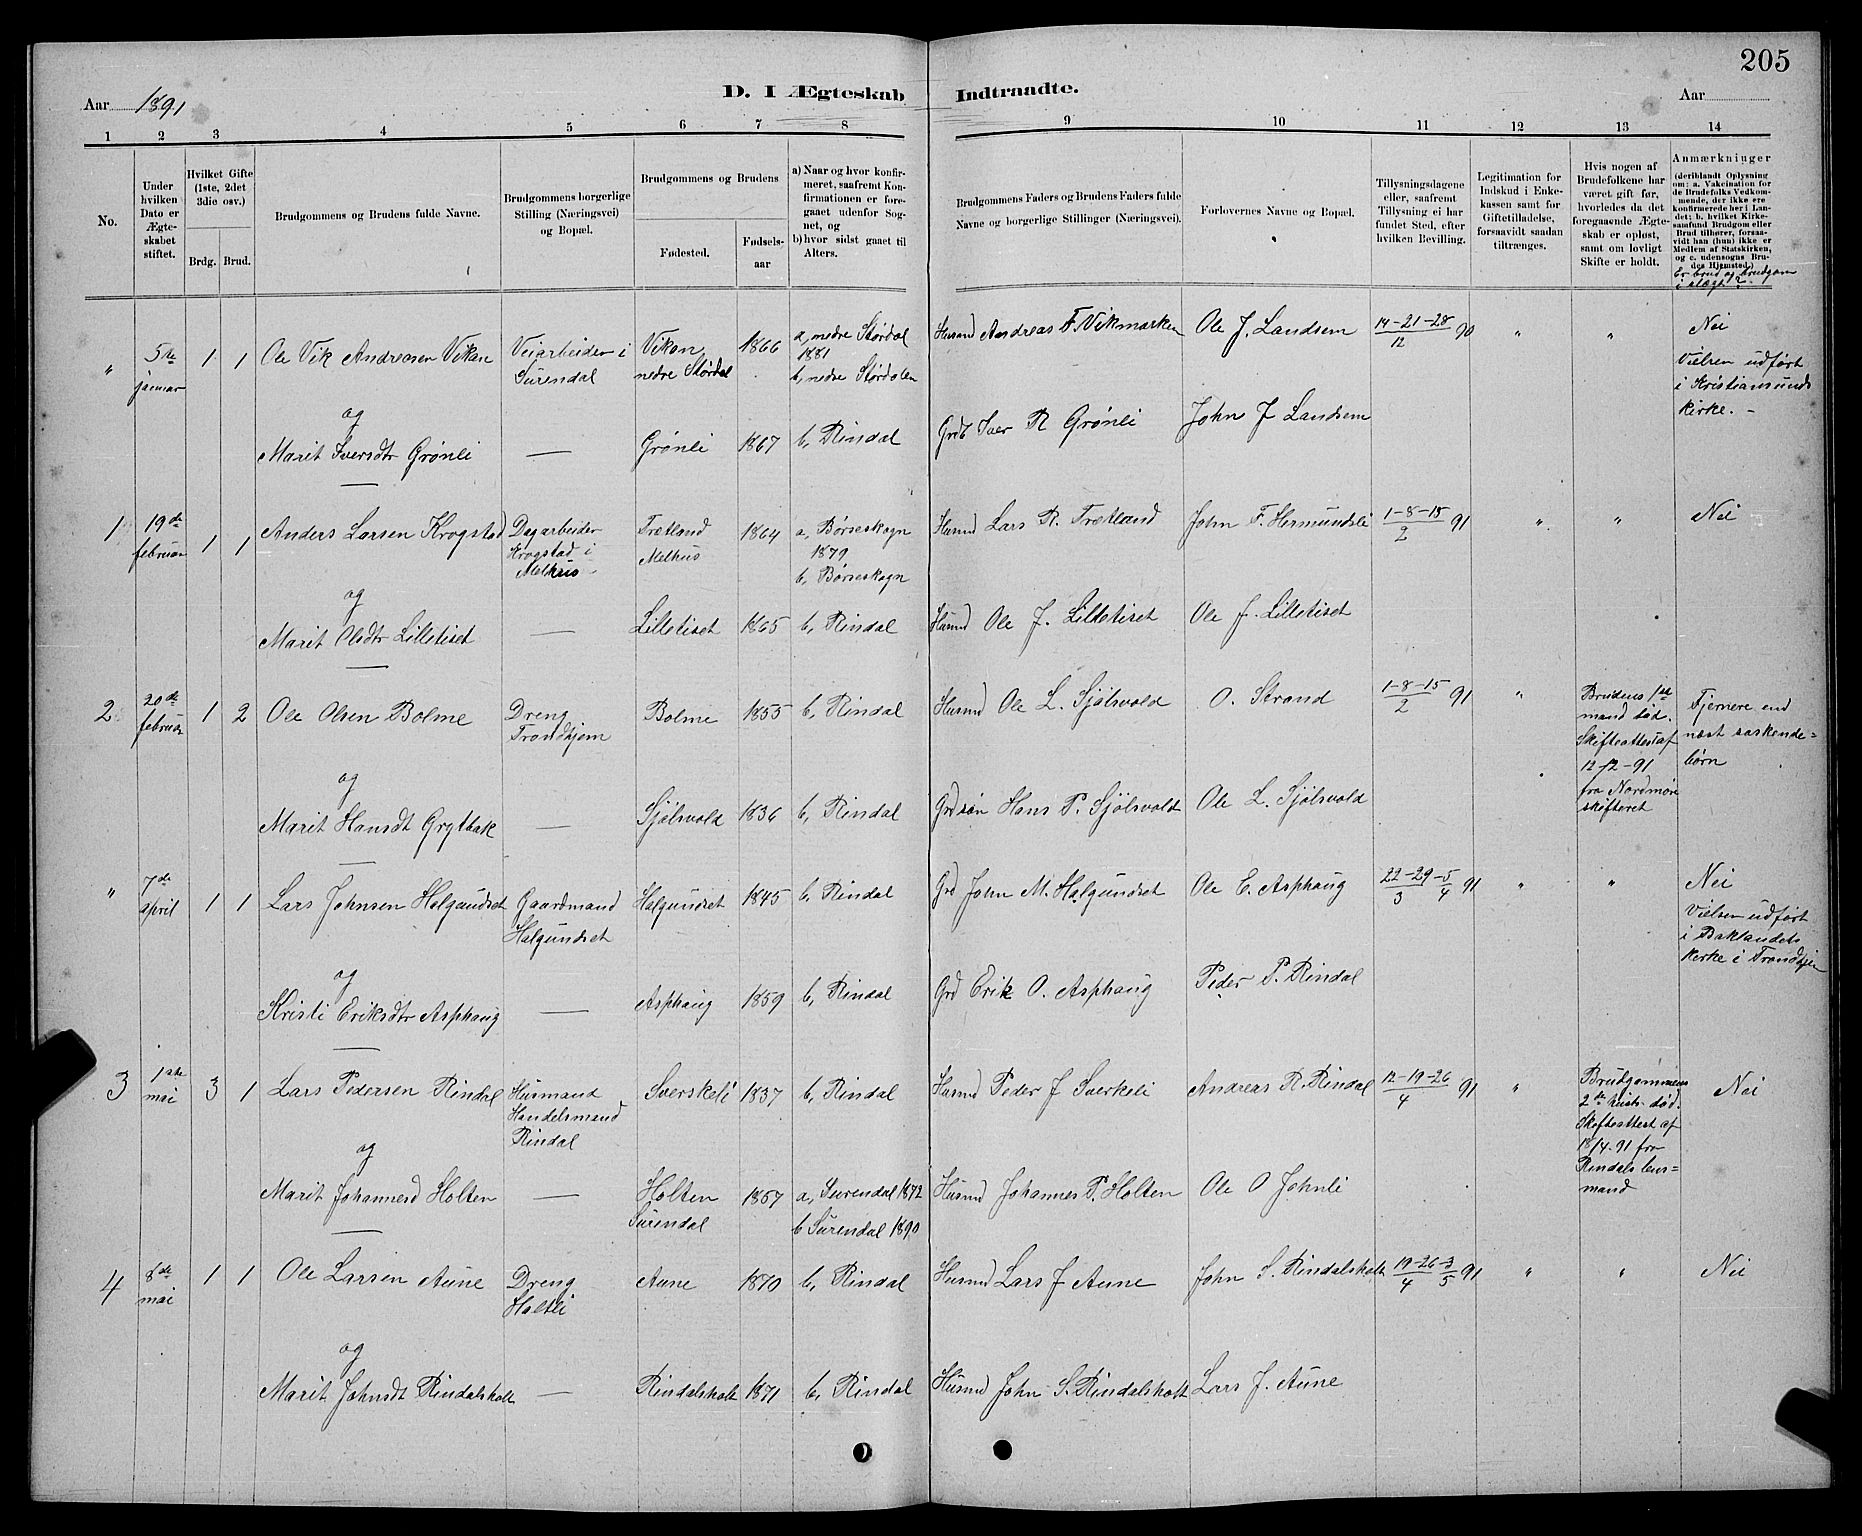 205
Aar 1891
D. I Ægteskab Indtraadte.
Aar
1 2 3 4 5 6 7 8 9 10 11 12 13 14
No.
Under hvilken Dato er Ægteskabet stiftet.
Hvilket Gifte (1ste, 2det 3die osv.)
Brdg. Brud.
Brudgommens og Brudens fulde Navne.
Brudgommens borgerlige Stilling (Næringsvei) og Bopæl.
Brudgommens og Brudens
Fødested.
Fødsels-aar
a) Naar og hvor konfirmeret, saafremt Konfirmationen er foregaaet udenfor Sognet, og
b) hvor sidst gaaet til Alters.
Brudgommens Faders og Brudens Faders fulde Navne og borgerlige Stillinger (Næringsvei).
Forlovernes Navne og Bopæl.
Tillysningsdagene eller, saafremt Tillysning ei har fundet Sted, efter hvilken Bevilling.
Legitimation for Indskud i Enkekassen samt for Giftetilladelse, forsaavidt saadan tiltrænges.
Hvis nogen af Brudefolkene har været gift før, hvorledes da det foregaaende Ægteskab er opløst, samt om lovligt Skifte er holdt.
Anmærkninger
(deriblandt Oplysning om: a. Vakcination for de Brudefolks Vedkommende, der ikke ere konfirmerede her i Landet; b. hvilket Kirkesamfund Brudgom eller Brud tilhører, forsaavidt han (hun) ikke er Medlem af Statskirken, og c. udensogns Brudes Hjemsted.)
Er brud og brudgom i slægt?
" 5te januar 1 1 Ole Vik Andreasen Vikan Veiarbeider i Surendal Vikan nedre Størdal 1866 a, nedre Størdal 1881 b, nedre Størdalen Husmd Andreas F. Vikmarken Ole J. Landsem 14-21-28/12 90 " " Nei Vielsen udført i Kristiansunds kirke. -
og
Marit Iversdtr Grønli — Grønli 1867 b, Rindal Grdb Iver R Grønli John J Landsem
1 19de februar 1 1 Anders Larsen Krogstad Dagarbeider Krogstad i Melhus Trætland Melhus 1864 a, Børseskogn 1879 b, Børseskogn Husmd Lars R. Trætland John F. Hermundsli 1-8-15/2 91 " " Nei
og
Marit Olsdtr Lilletiset — Lilletiset 1865 b, Rindal Husmd Ole J. Lilletiset Ole J. Lilletiset
2 20de februar 1 2 Ole Olsen Bolme Dreng Trondhjem Bolme 1855 b, Rindal Husmd Ole L. Sjølsvold O. Strand 1-8-15/2 91 " Brudens 1ste mand død. Skifteattest af 12-12-91 fra Nordmøre skifteret Fjernere end næst søskende=børn
og
Marit Hansdt Grytbak — Sjølsvold 1836 b, Rindal Grdsøn Hans P. Sjølsvold Ole L. Sjølsvold
" 7de april 1 1 Lars Johnsen Halgundset Gaardmand Halgundset Halgundset 1845 b, Rindal Grd John M. Halgundset Ole E. Asphaug 22-29/3-5/4 91 " " Nei Vielsen udført i Baklandets kirke i Trondhjem
og
Kristi Eriksdtr Asphaug — Asphaug 1859 b, Rindal Grd Erik O. Asphaug Peder P. Rindal
3 1ste mai 3 1 Lars Pedersen Rindal Husmand Handelsmand Rindal Sverskeli 1837 b, Rindal Husmd Peder J Sverkeli Andreas R. Rindal 12-19-26/4 91 " Brudgommens 2den hustr. død. Skifteattest af 18/4-91 fra Rindals lens=mand Nei
og
Marit Johannesd Holten — Holten Surendal 1857 a, Surendal 1872 b Surendal 1890 Husmd Johannes P. Holten Ole O Johnli
4 8de mai 1 1 Ole Larsen Aune Dreng Haltli Aune 1870 b, Rindal Husmd Lars J Aune John S. Rindalsholt 19-26/4-3/5 91 " " Nei
og
Marit Johnsdt Rindalsholt — Rindalsholt 1871 b, Rindal Husmd John S. Rindalsholt Lars J. Aune